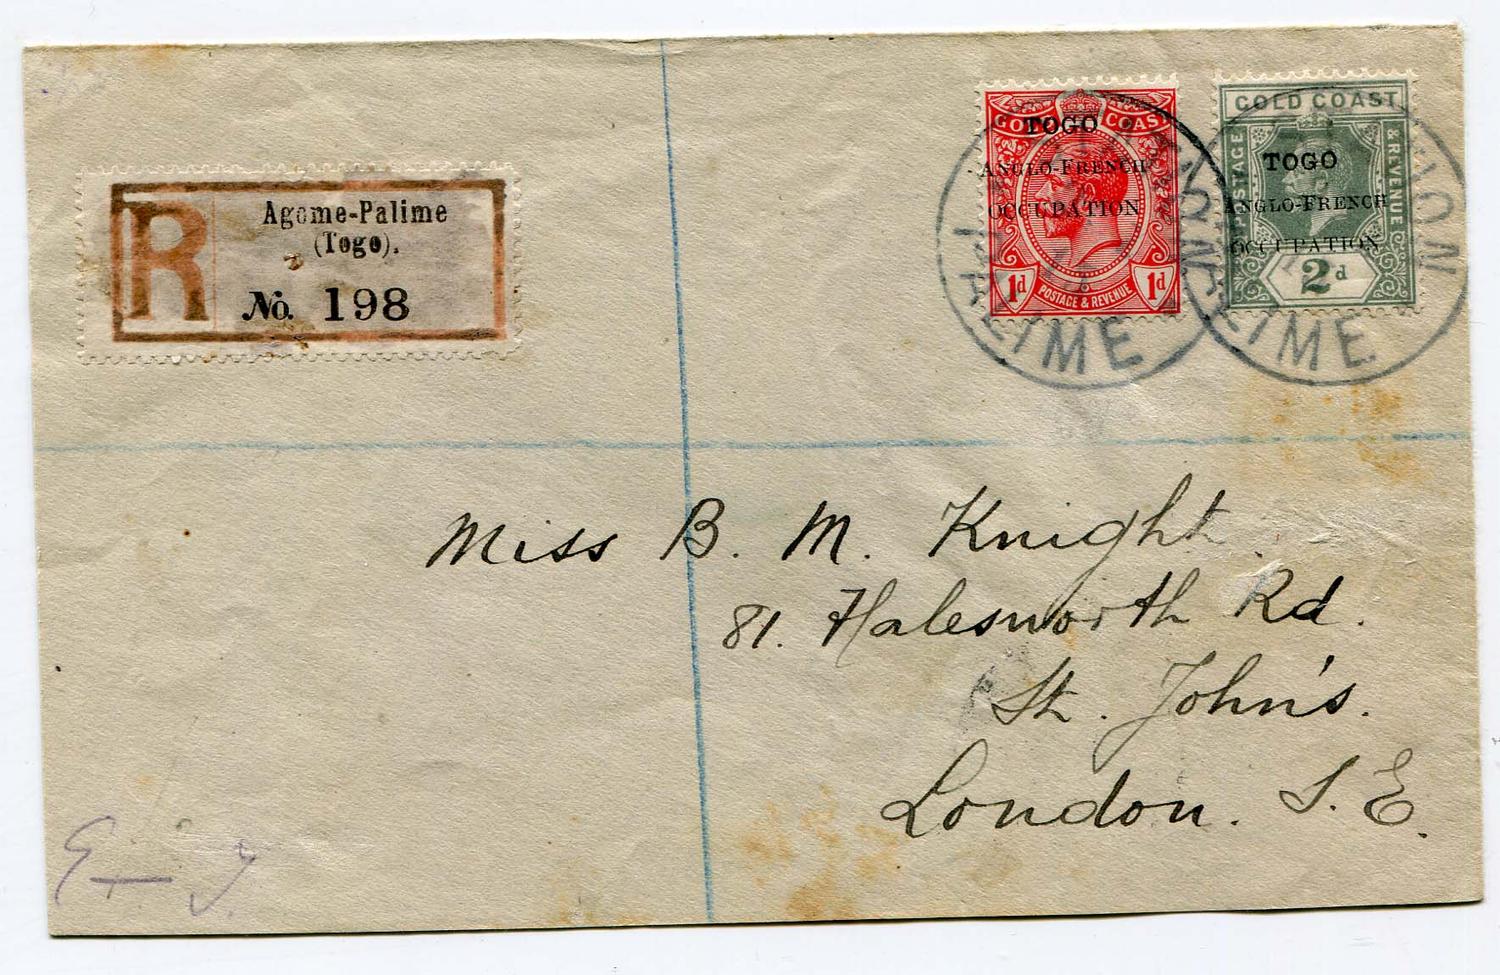 R
Agome-Palime
(Togo).
No. 198
GOLD COAST
TOGO
ANGLO-FRENCH
OCCUPATION
1d POSTAGE & REVENUE 1d
GOLD COAST
POSTAGE & REVENUE
TOGO
ANGLO-FRENCH
OCCUPATION
2d
PALIME
PALIME
Miss B. M. Knight.
81. Halesworth Rd.
St. John's.
London. S. E.